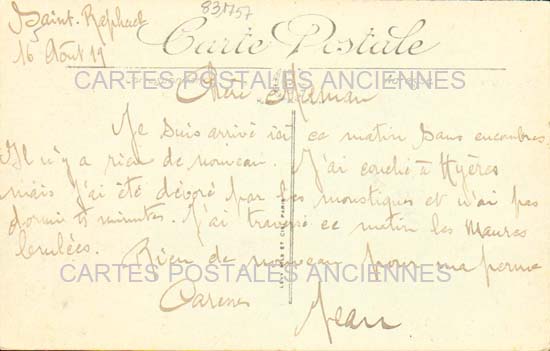 83M757
Saint-Raphael
16 Aout 19
Carte Postale
CARTES POSTALES ANCIENNES
Chère Maman
Je suis arrivé ici ce matin sans encombres
Il n'y a rien de nouveau. J'ai couché à Hyères
mais j'ai été dévoré par les moustiques et n'ai pas
dormi 5 minutes. J'ai traversé ce matin les Maures
brulées. Rien de nouveau pour ma perme
CARTES POSTALES ANCIENNES
Jean